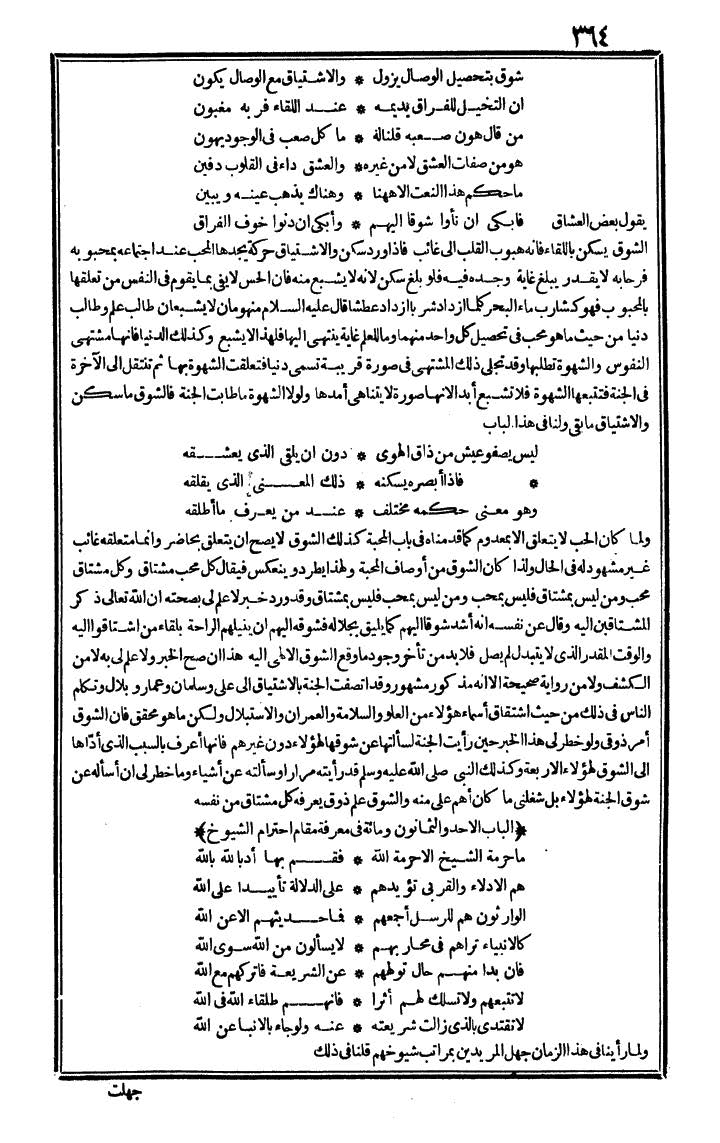 ٣٦٤
شوق بتحصيل الوصال يزول * والاشتياق مع الوصال يكون
ان التخيل للفراق يديمه * عند اللقاء فر به مغبون
من قال هون صعبه قلناله * ما كل صعب فى الوجود يهون
هو من صفات العشق لا من غيره * والعشق داء فى القلوب دفين
ما حكم هذا النعت الاههنا * وهناك يذهب عينه ويبين
يقول بعض العشاق فابكى ان نأوا شوقا اليهم * وأبكى ان دنوا خوف الفراق
الشوق يسكن باللقاء فانه هبوب القلب الى غائب فاذا ورد سكن والاشتياق حركة يجدها المحب عند اجتماعه بمحبوبه
فرحا به لا يقدر يبلغ غاية وجده فيه فلو بلغ سكن لانه لا يشبع منه فان الحس لا يفى بما يقوم فى النفس من تعلقها
بالمحبوب فهو كشارب ماء البحر كلما ازداد شربا ازداد عطشا قال عليه السلام منهومان لا يشبعان طالب علم وطالب
دنيا من حيث ما هو محب فى تحصيل كل واحد منهما وما للعلم غاية ينتهى اليها فلهذا لا يشبع وكذلك الدنيا فانها مشتهى
النفوس والشهوة تطلبها وقد تجلى ذلك المشتهى فى صورة قريبة تسمى دنيا فتعلقت الشهوة بها ثم تنتقل الى الآخرة
فى الجنة فتتبعها الشهوة فلا تشبع أبدا لانها صورة لا يتناهى أمدها ولولا الشهوة ما طابت الجنة فالشوق ما سكن
والاشتياق ما بقى ولنا فى هذا لباب
ليس يصفو عيش من ذاق الهوى * دون ان يلقى الذى يعشقه
* فاذا أبصره يسكنه * ذلك المعنى الذى يقلقه
وهو معنى حكمه مختلف * عند من يعرف ما أطلقه
ولما كان الحب لا يتعلق الا بمعدوم كما قدمناه فى باب المحبة كذلك الشوق لا يصح ان يتعلق بحاضر وانما متعلقه غائب
غير مشهود له فى الحال ولذا كان الشوق من أوصاف المحبة ولهذا يطرد وينعكس فيقال كل محب مشتاق وكل مشتاق
محب ومن ليس بمشتاق فليس بمحب ومن ليس بمحب فليس بمشتاق وقد ورد خبر لا علم لى بصحته ان الله تعالى ذكر
المشتاقين اليه وقال عن نفسه انه أشد شوقا اليهم كما يليق بجلاله فشوقه اليهم ان ينيلهم الراحة بلقاء من اشتاقوا اليه
والوقت المقدر الذى لا يتبدل لم يصل فلا بد من تأخر وجود ما وقع الشوق الالهى اليه هذا ان صح الخبر ولا علم لى به لا من
الكشف ولا من رواية صحيحة الا انه مذكور مشهور وقد اتصفت الجنة بالاشتياق الى على وسلمان وعمار وبلال وتكلم
الناس فى ذلك من حيث اشتقاق أسماء هؤلاء من العلو والسلامة والعمران والاستبلال ولكن ما هو محقق فان الشوق
أمر ذوقى ولو خطر لى هذا الخبر حين رأيت الجنة لسألتها عن شوقها لهؤلاء دون غيرهم فانها أعرف بالسبب الذى أداها
الى الشوق لهؤلاء الاربعة وكذلك النبى صلى الله عليه وسلم قد رأيته مرارا وسألته عن أشياء وما خطر لى ان أسأله عن
شوق الجنة لهؤلاء بل شغلنى ما كان أهم على منه والشوق علم ذوق يعرفه كل مشتاق من نفسه
﴿الباب الاحد والثمانون ومائة فى معرفة مقام احترام الشيوخ﴾
ما حرمة الشيخ الا حرمة الله * فقم بها أدبا لله بالله
هم الادلاء والقربى تؤيدهم * على الدلالة تأييدا على الله
الوارثون هم للرسل أجمعهم * فما حديثهم الا عن الله
كالانبياء تراهم فى محاربهم * لا يسألون من الله سوى الله
فان بدا منهم حال تولههم * عن الشريعة فاتركهم مع الله
لا تتبعهم ولا تسلك لهم أثرا * فانهم طلقاء الله فى الله
لا تقتدى بالذى زالت شريعته * عنه ولو جاء بالانبا عن الله
ولما رأينا فى هذا الزمان جهل المريدين بمراتب شيوخهم قلنا فى ذلك
جهلت